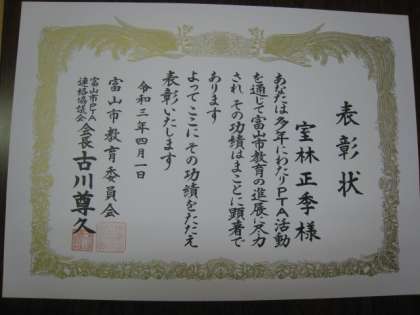 表彰状
室林正季様
あなたは多年にわたりPTA活動
を通じて富山市教育の進展に尽力
され その功績はまことに顕著で
あります
よってここに その功績をたたえ
表彰いたします
令和三年四月一日
富山市教育委員会
富山市PTA
連絡協議会
会長 古川尊久